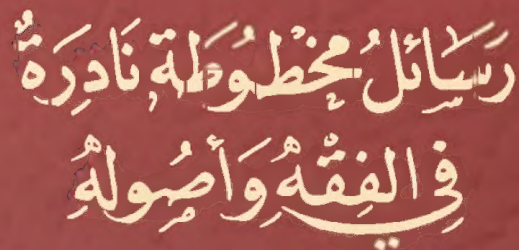 رَسَائلُ مَخْطُوطَة نَادِرَةٌ
فِي الفِقْهِ وَأصُولِهِ